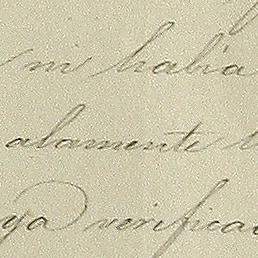 ni habia
alamente
ya verifica